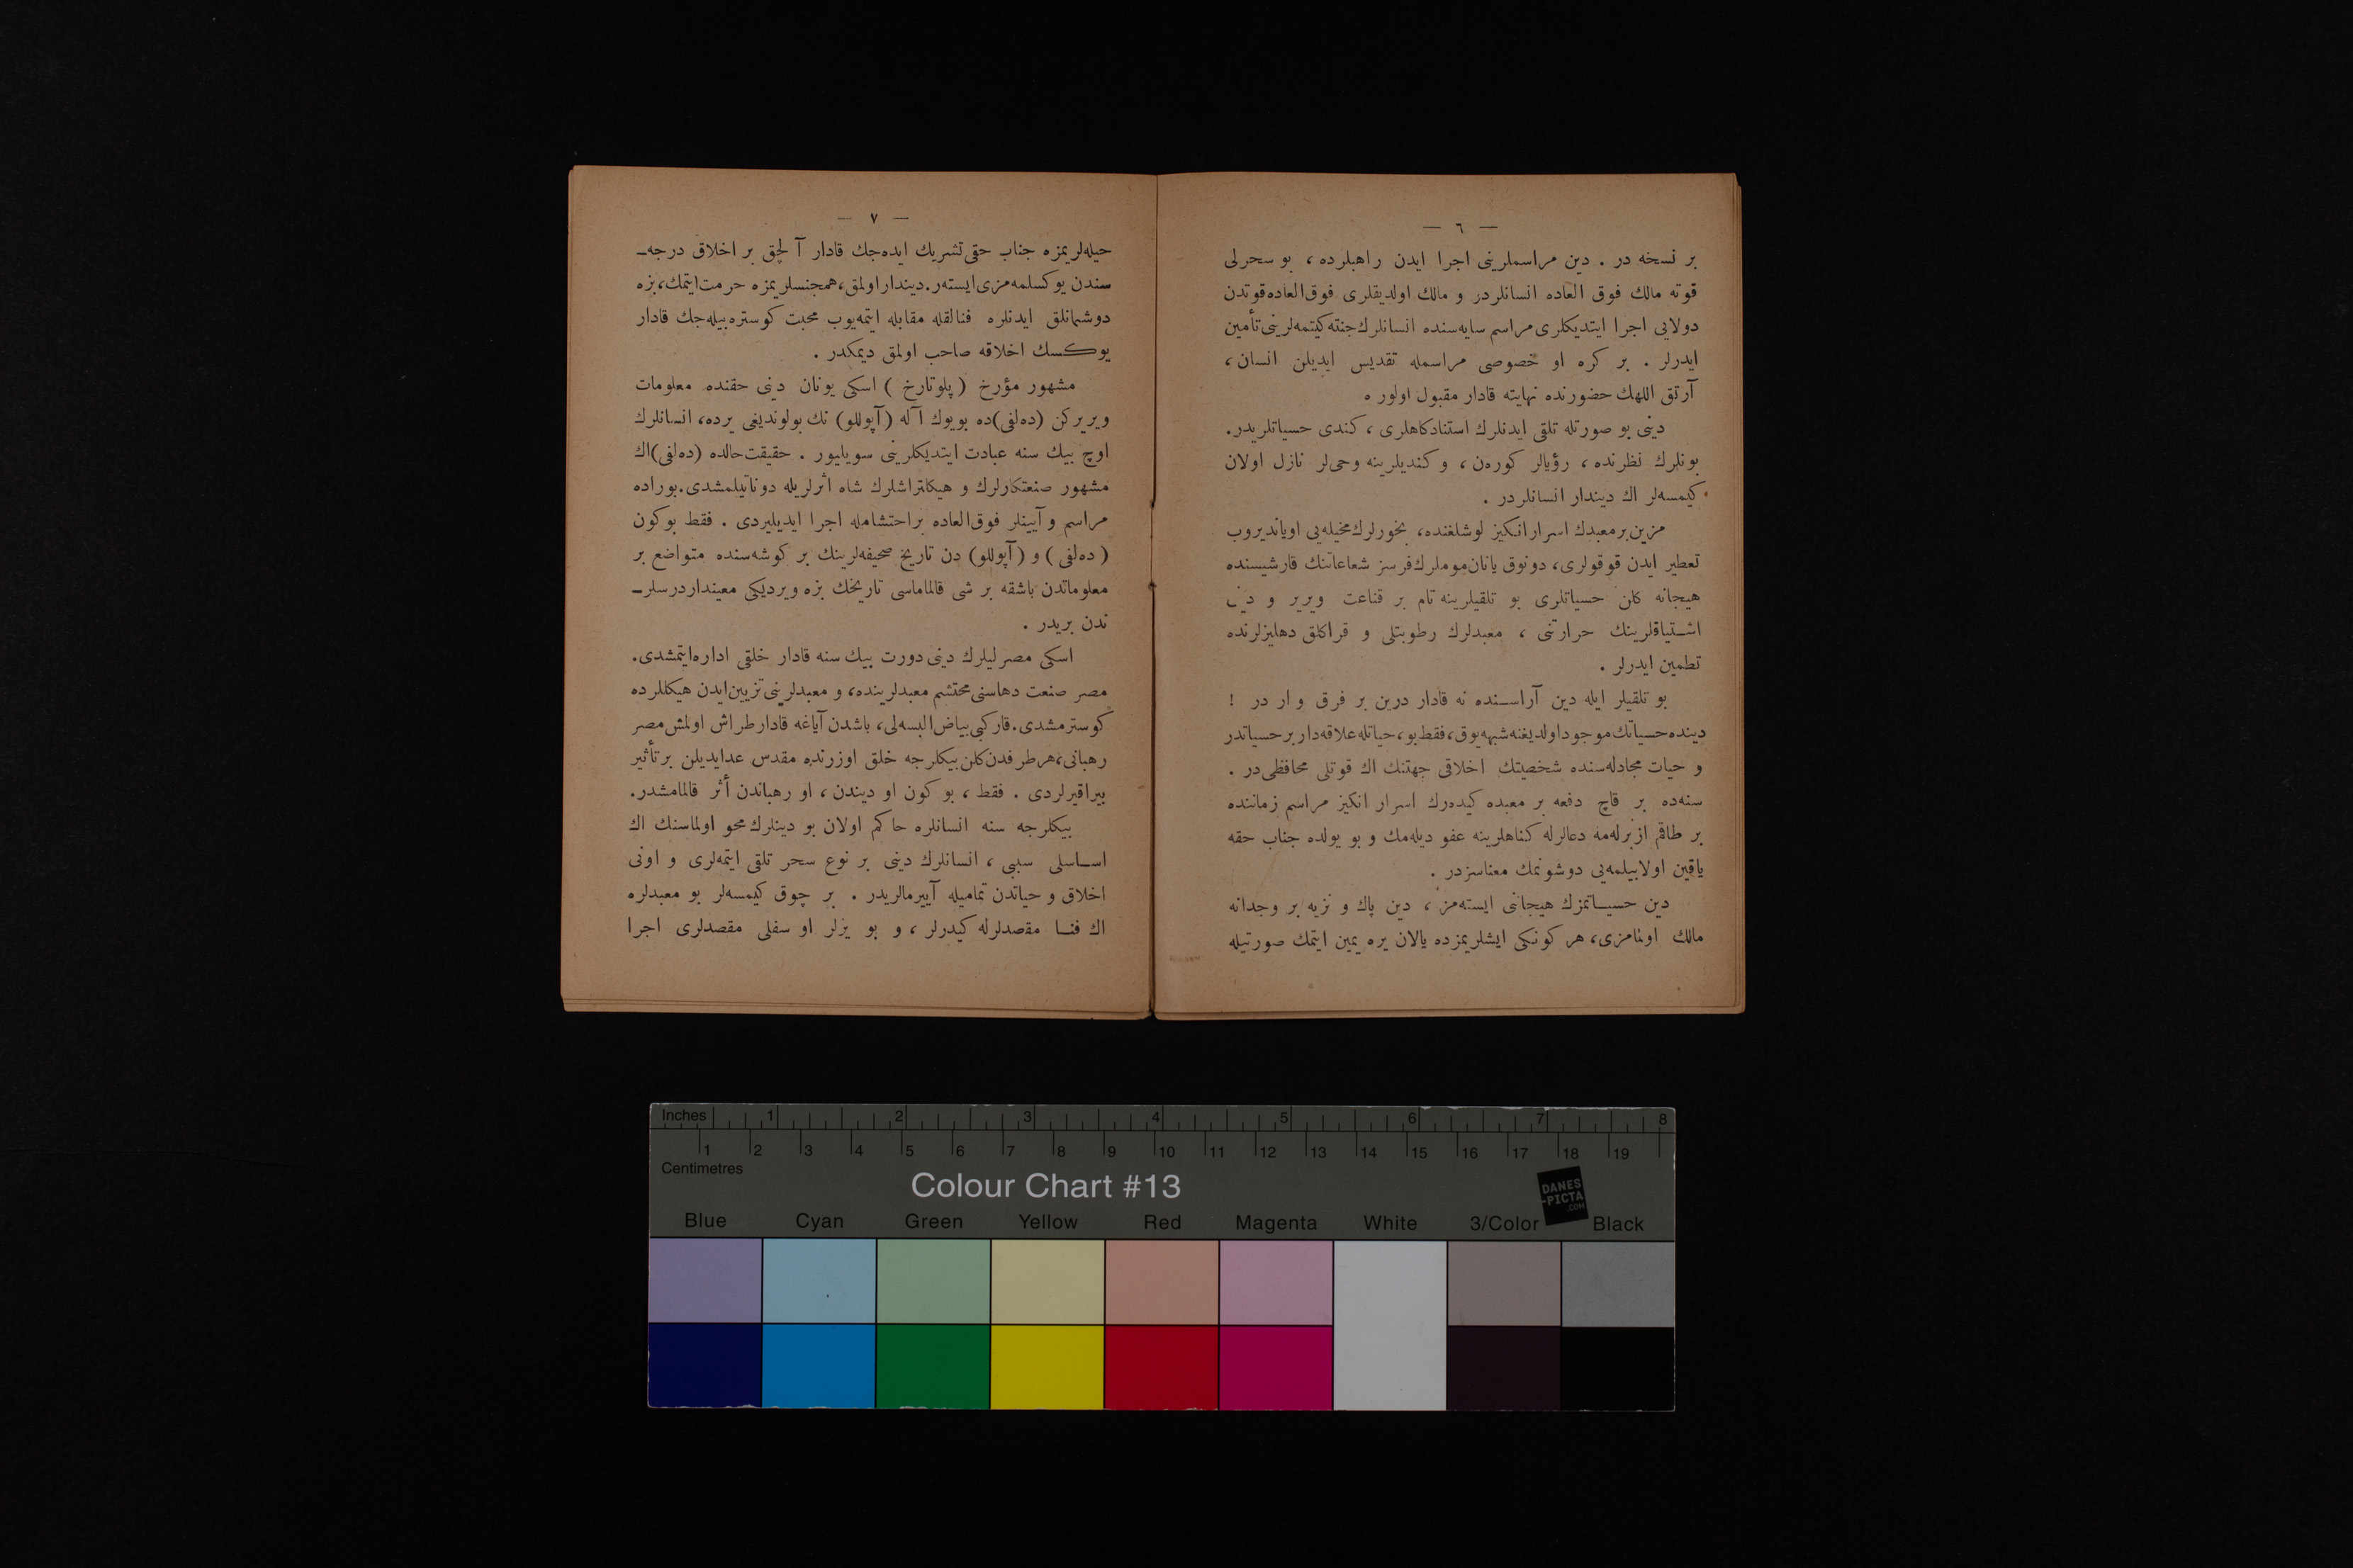 — ٦ —
بر نسخه در . دین مراسملرینی اجرا ایدن راهبلرده ، بو سحرلی
قوته مالك فوق العاده انسانلردر و مالك اولدیقلری فوق‌العاده قوتدن
دولایی اجرا ایتدیكلری مراسم سایه‌سنده انسانلرك جنته كیتمه‌لرینی تأمین
ایدرلر . بر كره او خصوصی مراسمله تقدیس ایدیلن انسان ،
آرتق اللهك حضورنده نهایته قادار مقبول اولور ه
دینی بو صورتله تلقی ایدنلرك استنادكاهلری ، كندی حسیاتلریدر.
بونلرك نظرنده ، رؤیالر كوره‌ن ، و كندیلرینه وحی‌لر نازل اولان
كیمسه‌لر اك دیندار انسانلردر .
مزین بر معبدك اسرار انكیز لوشلغنده ، بخورلرك مخیله‌یی اویاندیروب
تعطیر ایدن قوقولری ، دونوق یانان موملرك فرسز شعاعاتنك قارشیسنده
هیجانه كلن حسیاتلری بو تلقیلرینه تام بر قناعت ویریر و دینی
اشــتیاقلرینك حرارتنی ، معبدلرك رطوبتلی و قراكلق دهلیزلرنده
تطمین ایدرلر .
بو تلقیلر ایله دین آراســنده نه قادار درین بر فرق وار در !
دینده حسیاتك موجود اولدیغنه شبهه یوق ، فقط بو ، حیاتله علاقه‌دار بر حسیاتدر
و حیات مجادله‌سنده شخصیتك اخلاقی جهتنك اك قوتلی محافظی در .
سنه‌ده بر قاچ دفعه بر معبده كیده‌رك اسرار انكیز مراسم زماننده
بر طاقم ازبرله‌مه دعالرله كناهلرینه عفو دیله‌مك و بو یولده جناب حقه
یاقین اولابیلمه‌یی دوشونمك معناسزدر .
دین حسیــاتمزك هیجانی ایسته‌مز ، دین پاك و نزیه بر وجدانه
مالك اولمامزی، هر كونكی ایشلریمزده یالان یره یمین ایتمك صورتیله
— ٧ —
حیله‌لریمزه جناب حقی تشریك ایده‌جك قادار آلچق بر اخلاق درجه‌ـ
سندن یوكسلمه‌مزی ایسته‌ر. دیندار اولمق ، همجنسلریمزه حرمت ایتمك ، بزه
دوشمانلق ایدنلره فنالقله مقابله ایتمه‌یوب محبت كوستره بیله‌جك قادار
یوكسك اخلاقه صاحب اولمق دیمكدر .
مشهور مؤرخ ( پلوتارخ ) اسكی یونان دینی حقنده معلومات
ویریركن (ده‌لفی) ده بویوك آله (آپوللو) نك بولوندیغی یرده ، انسانلرك
اوچ بیك سنه عبادت ایتدیكلرینی سویلیور . حقیقت حالده (ده‌لفی) اك
مشهور صنعتكارلرك و هیكلتراشلرك شاه اثرلریله دوناتیلمشدی. بوراده
مراسم و آیینلر فوق‌العاده بر احتشامله اجرا ایدیلیردی . فقط بو كون
( ده‌لفی ) و (آپوللو) دن تاریخ صحیفه‌لرینك بر كوشه‌سنده متواضع بر
معلوماتدن باشقه بر شی قالماماسی تاریخك بزه ویردیكی معیندار درسلرـ
ندن بریدر .
اسكی مصر لیلرك دینی دورت بیك سنه قادار خلقی اداره ایتمشدی.
مصر صنعت دهاسنی محتشم معبدلرینده ، و معبدلرینی تزیین ایدن هیكللرده
كوسترمشدی. قار كبی بیاض البسه‌لی ، باشدن آیاغه قادار طراش اولمش مصر
رهبانی ، هر طرفدن كلن بیكلرجه خلق اوزرنده مقدس عد ایدیلن بر تأثیر
بیراقیرلردی . فقط ، بو كون او دیندن ، او رهباندن أثر قالمامشدر.
بیكلرجه سنه انسانلره حاكم اولان بو دینلرك محو اولماسنك اك
اســاسلی سببی ، انسانلرك دینی بر نوع سحر تلقی ایتمه‌لری و اونی
اخلاق و حیاتدن تمامیله آییرمالریدر . بر چوق كیمسه‌لر بو معبدلره
اك فنــا مقصدلرله كیدرلر ، و بو یزلر او سفلی مقصدلری اجرا
Inches 1 2 3 4 5 6 7 8
1 2 3 4 5 6 7 8 9 10 11 12 13 14 15 16 17 18 19
Centimetres
Colour Chart #13
DANES
-PICTA
.COM
Blue Cyan Green Yellow Red Magenta White 3/Color Black